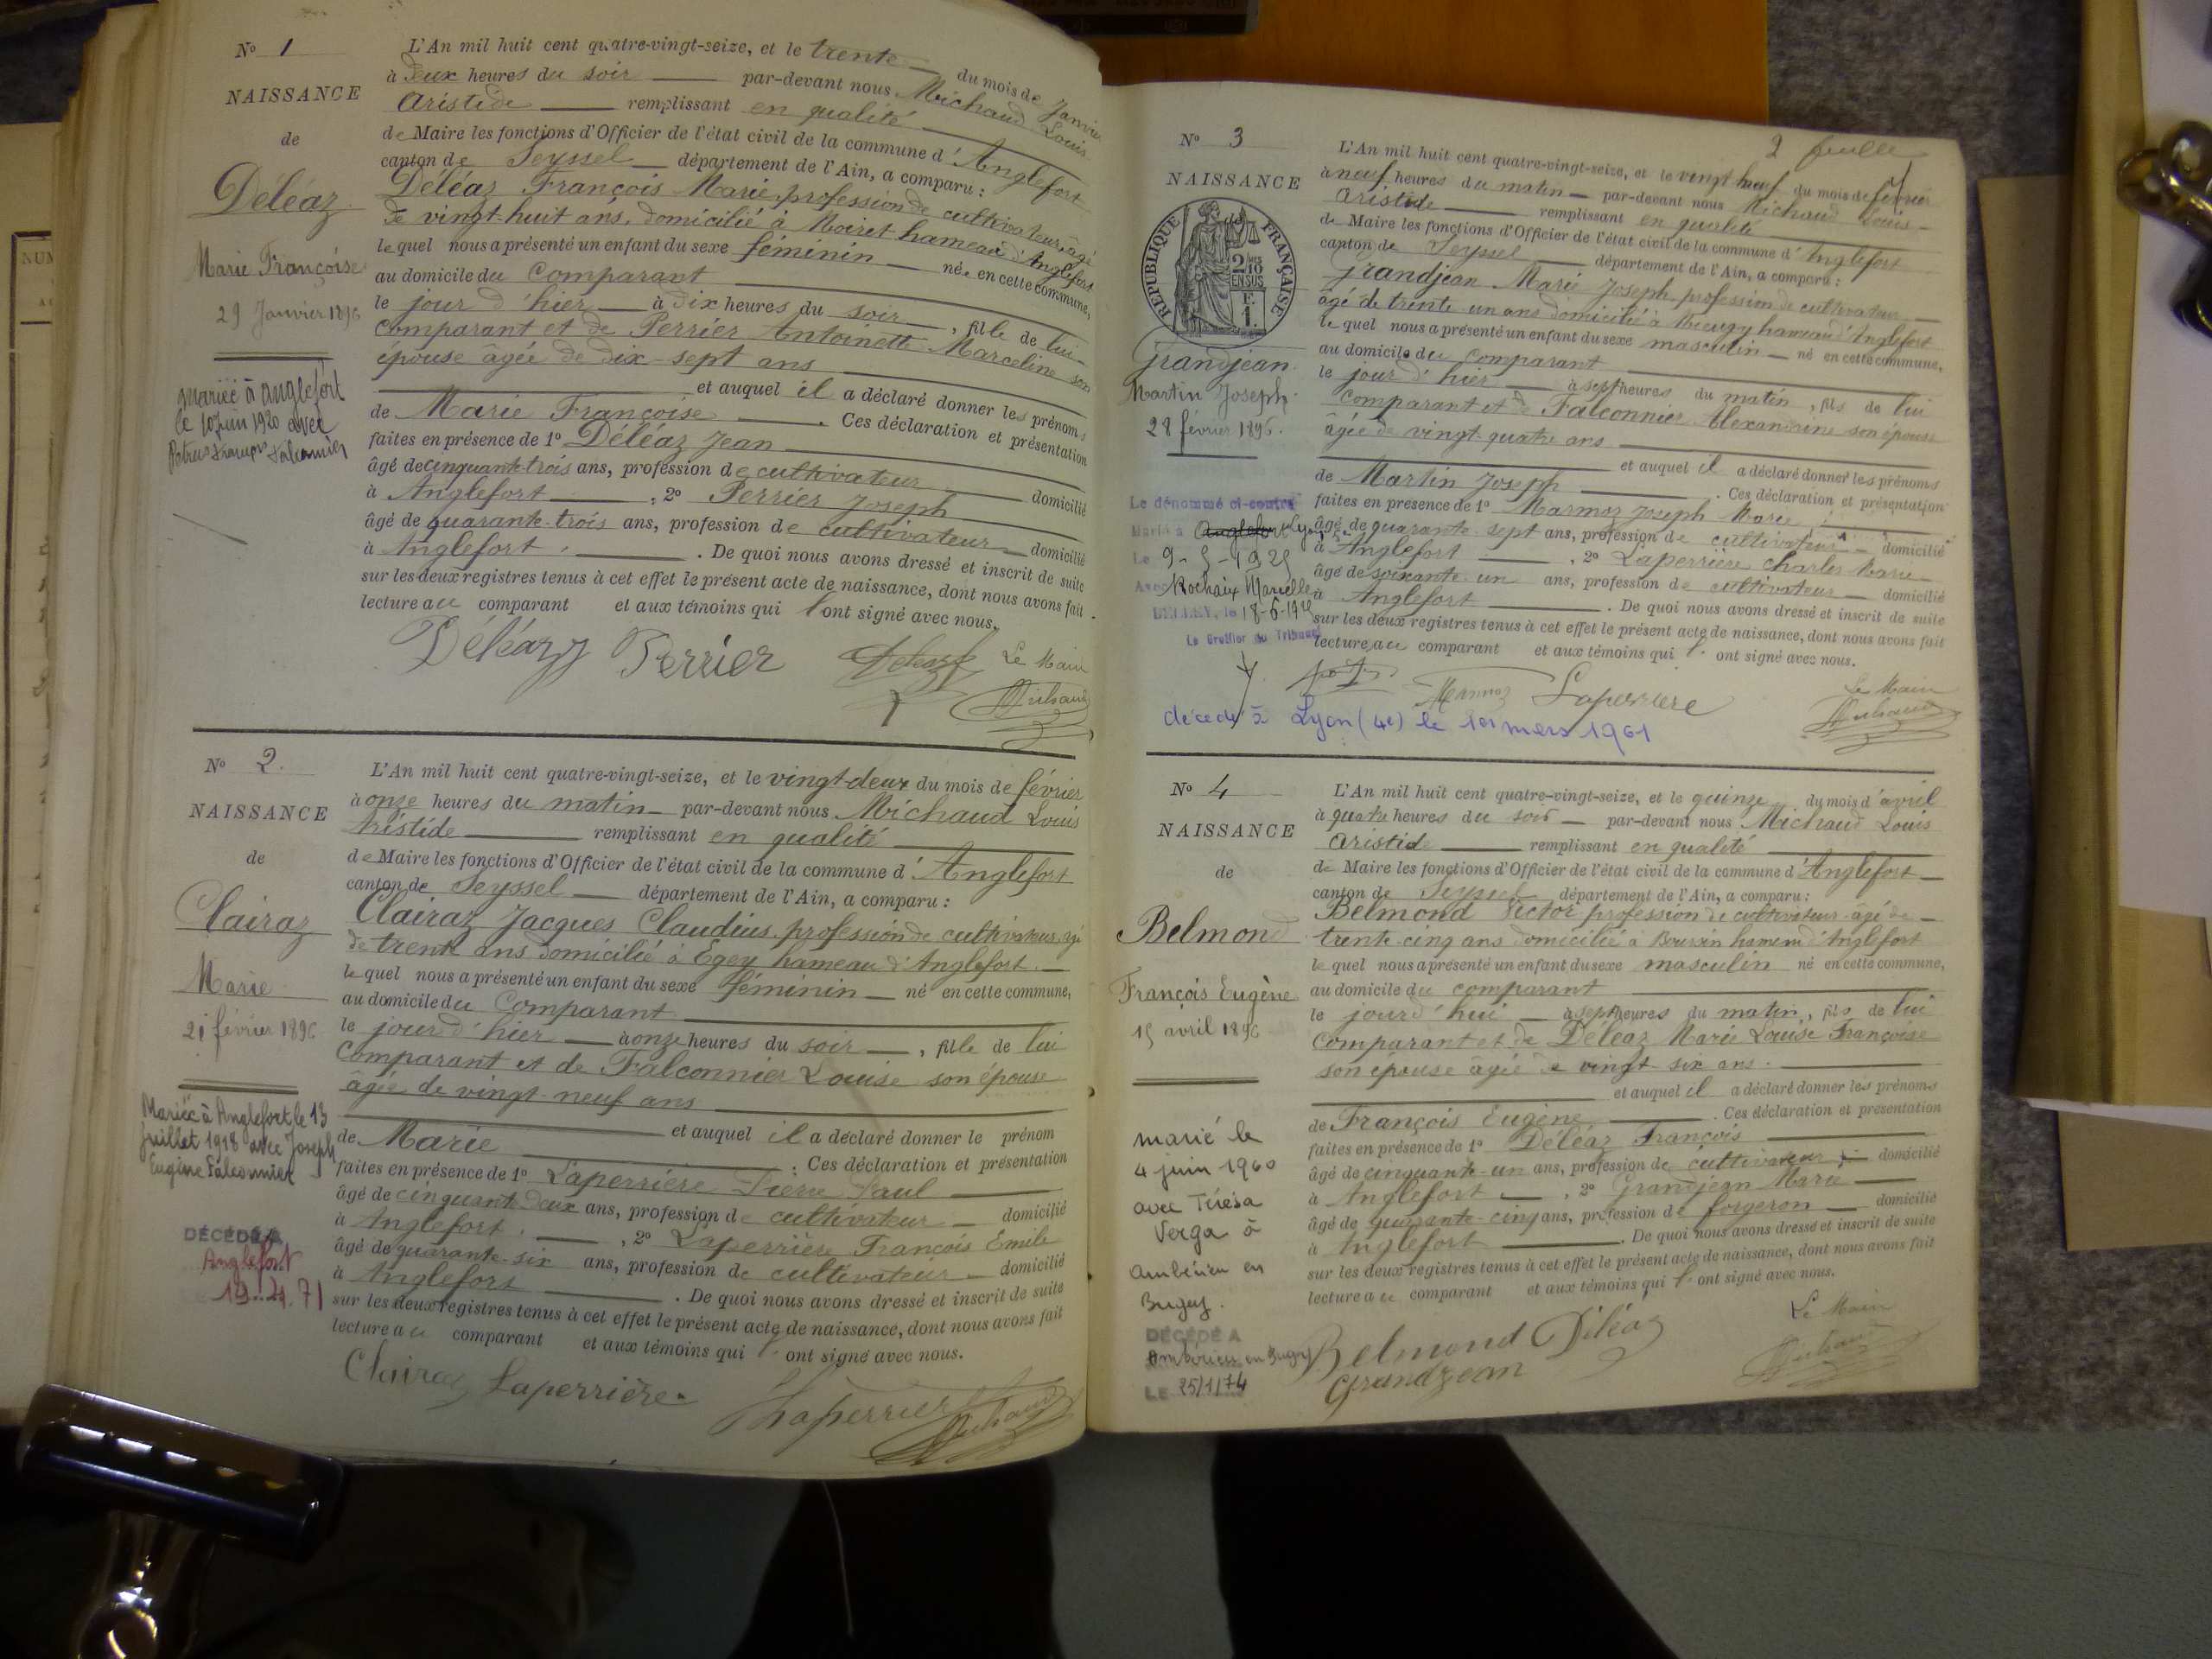 N° 1
NAISSANCE
de
Déléaz
Marie Françoise
29 Janvier 1896
Mariée à Anglefort
le 10 juin 1920 avec
L'An mil huit cent quatre-vingt-seize, et le trente du mois de Janvier
à deux heures du soir par-devant nous Michaud Louis
Aristide remplissant en qualité
de Maire les fonctions d'Officier de l'état civil de la commune d'Anglefort
canton de Seyssel département de l'Ain, a comparu :
Déléaz François Marie, profession de cultivateur, âgé
de vingt-huit ans, domicilié à Moiret hameau d'Anglefort
lequel nous a présenté un enfant du sexe féminin née en cette commune,
au domicile du comparant
le jour d'hier à dix heures du soir, fille de lui
comparant et de Perrier Antoinette Marceline son
épouse âgée de dix-sept ans
et auquel il a déclaré donner les prénoms
de Marie Françoise. Ces déclaration et présentation
faites en présence de 1° Déléaz Jean
âgé de cinquante-trois ans, profession de cultivateur domicilié
à Anglefort, 2° Perrier Joseph
âgé de quarante-trois ans, profession de cultivateur domicilié
à Anglefort. De quoi nous avons dressé et inscrit de suite
sur les deux registres tenus à cet effet le présent acte de naissance, dont nous avons fait
lecture au comparant et aux témoins qui l'ont signé avec nous.
Déléaz Perrier Le Maire
Michaud
N° 2.
NAISSANCE
de
Clairaz
Marie
21 février 1896
Mariée à Anglefort le 13
juillet 1918 avec Joseph
Eugène Falconnier
DÉCÉDÉ A
Anglefort
19.4.71
L'An mil huit cent quatre-vingt-seize, et le vingt-deux du mois de février
à onze heures du matin par-devant nous Michaud Louis
Aristide remplissant en qualité
de Maire les fonctions d'Officier de l'état civil de la commune d'Anglefort
canton de Seyssel département de l'Ain, a comparu :
Clairaz Jacques Claudius, profession de cultivateur, âgé
de trente ans domicilié à Egey hameau d'Anglefort.
lequel nous a présenté un enfant du sexe féminin né en cette commune,
au domicile du comparant
le jour d'hier à onze heures du soir, fille de lui
comparant et de Falconnier Louise son épouse
âgée de vingt-neuf ans
et auquel il a déclaré donner le prénom
de Marie. Ces déclaration et présentation
faites en présence de 1° Laperrière Pierre Paul
âgé de cinquante deux ans, profession de cultivateur domicilié
à Anglefort, 2° Laperrière François Emile
âgé de quarante-six ans, profession de cultivateur domicilié
à Anglefort. De quoi nous avons dressé et inscrit de suite
sur les deux registres tenus à cet effet le présent acte de naissance, dont nous avons fait
lecture au comparant et aux témoins qui l'ont signé avec nous.
Clairaz Laperrière Laperrière Michaud
2 feuille
N° 3
NAISSANCE
de
RÉPUBLIQUE FRANÇAISE
2/10 EN SUS
F. 1.
Grandjean
Martin Joseph
28 février 1896.
Le dénommé ci-contre
Marié à Anglefort Lyon
Le 9-5-1925
Avec Rochaix Marcelle
BELLEY, le 18-6-19
Le Greffier du Tribunal
L'An mil huit cent quatre-vingt-seize, et le vingt neuf du mois de février
à neuf heures du matin par-devant nous Michaud Louis
Aristide remplissant en qualité
de Maire les fonctions d'Officier de l'état civil de la commune d'Anglefort
canton de Seyssel département de l'Ain, a comparu :
Grandjean Marie Joseph profession de cultivateur
âgé de trente un ans domicilié à hameau d'Anglefort
lequel nous a présenté un enfant du sexe masculin né en cette commune,
au domicile du comparant
le jour d'hier à sept heures du matin, fils de lui
comparant et de Falconnier Alexandrine son épouse
âgée de vingt-quatre ans
et auquel il a déclaré donner les prénoms
de Martin Joseph. Ces déclaration et présentation
faites en présence de 1° Marmoz Joseph Marie
âgé de quarante-sept ans, profession de cultivateur domicilié
à Anglefort, 2° Laperrière Charles Marie
âgé de soixante-un ans, profession de cultivateur domicilié
à Anglefort. De quoi nous avons dressé et inscrit de suite
sur les deux registres tenus à cet effet le présent acte de naissance, dont nous avons fait
lecture au comparant et aux témoins qui l'ont signé avec nous.
Marmoz Laperrière Le Maire
Michaud
décédé à Lyon (4e) le 1er mars 1961
N° 4
NAISSANCE
de
Belmond
François Eugène
15 avril 1896
marié le
4 juin 1960
avec Térésa
Verga à
Ambérieu en
Bugey.
DÉCÉDÉ A
Ambérieu en Bugey
LE 25/1/74
L'An mil huit cent quatre-vingt-seize, et le quinze du mois d'avril
à quatre heures du soir par-devant nous Michaud Louis
Aristide remplissant en qualité
de Maire les fonctions d'Officier de l'état civil de la commune d'Anglefort
canton de Seyssel département de l'Ain, a comparu :
Belmond Victor profession de cultivateur âgé de
trente-cinq ans domicilié à Boursin hameau d'Anglefort
lequel nous a présenté un enfant du sexe masculin né en cette commune,
au domicile du comparant
le jourd'hui à sept heures du matin, fils de lui
comparant et de Déléaz Marie Louise Françoise
son épouse âgée de vingt-six ans.
et auquel il a déclaré donner les prénoms
de François Eugène. Ces déclaration et présentation
faites en présence de 1° Déléaz François
âgé de cinquante-un ans, profession de cultivateur domicilié
à Anglefort, 2° Grandjean Marie
âgé de quarante-cinq ans, profession de forgeron domicilié
à Anglefort. De quoi nous avons dressé et inscrit de suite
sur les deux registres tenus à cet effet le présent acte de naissance, dont nous avons fait
lecture au comparant et aux témoins qui l'ont signé avec nous.
Belmond Déléaz Le Maire
Grandjean Michaud